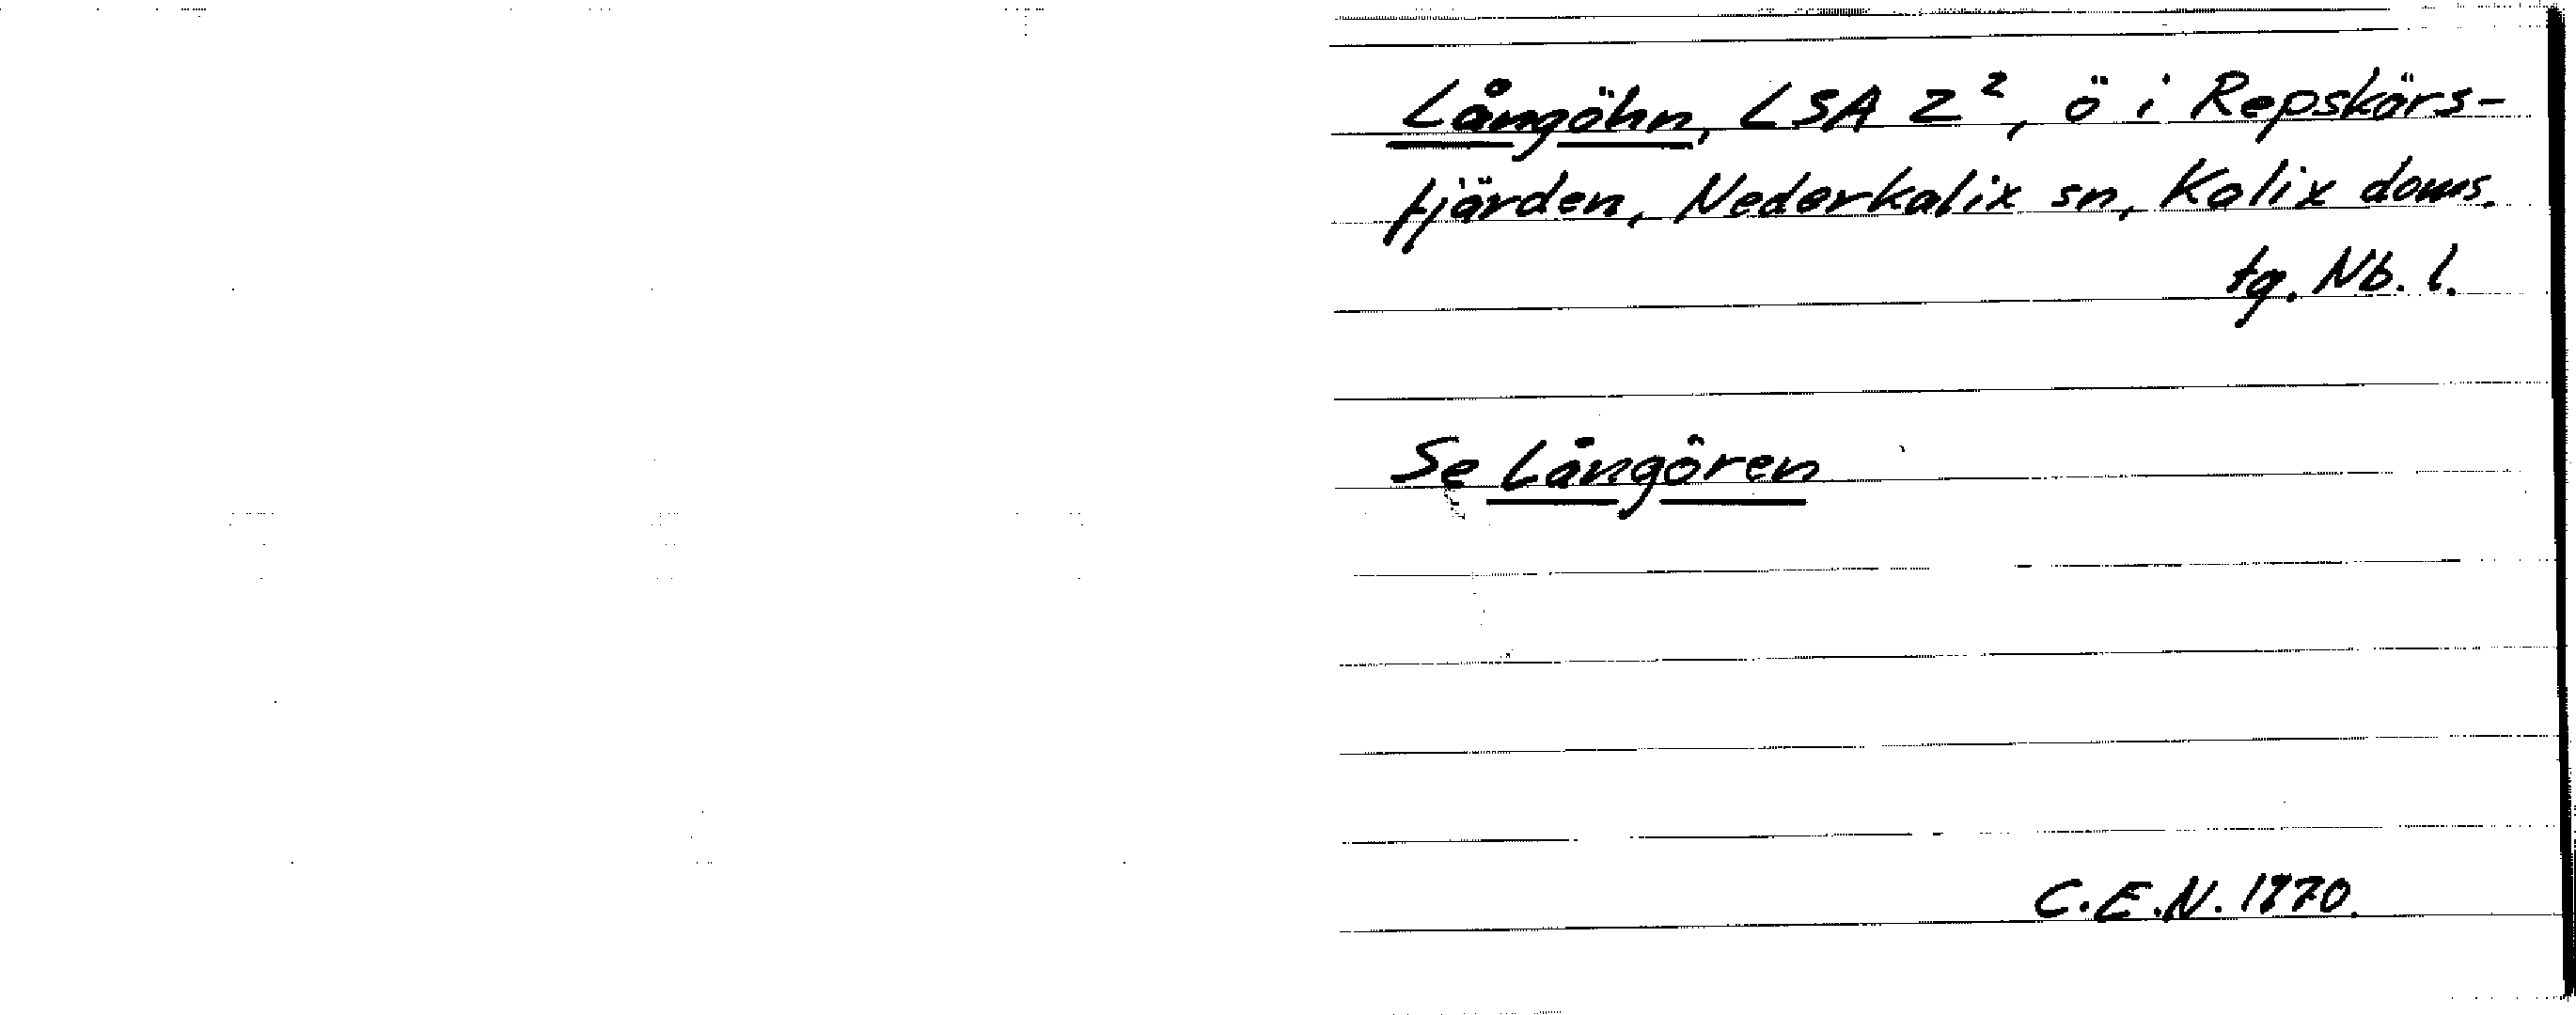 Långöhn, LSA Z², ö i Repskärs-
fjärden, Nederkalix sn, Kalix doms.
tg. Nb. l.
Se Långören
C.E.N. 1970.